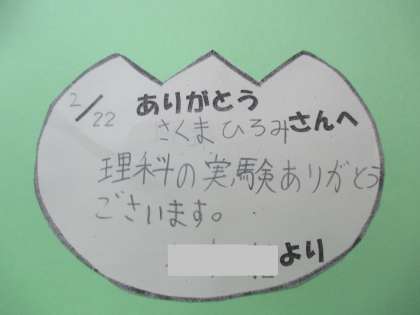 2/22 ありがとう
さくまひろみさんへ
理科の実験ありがとう
ございます。
より